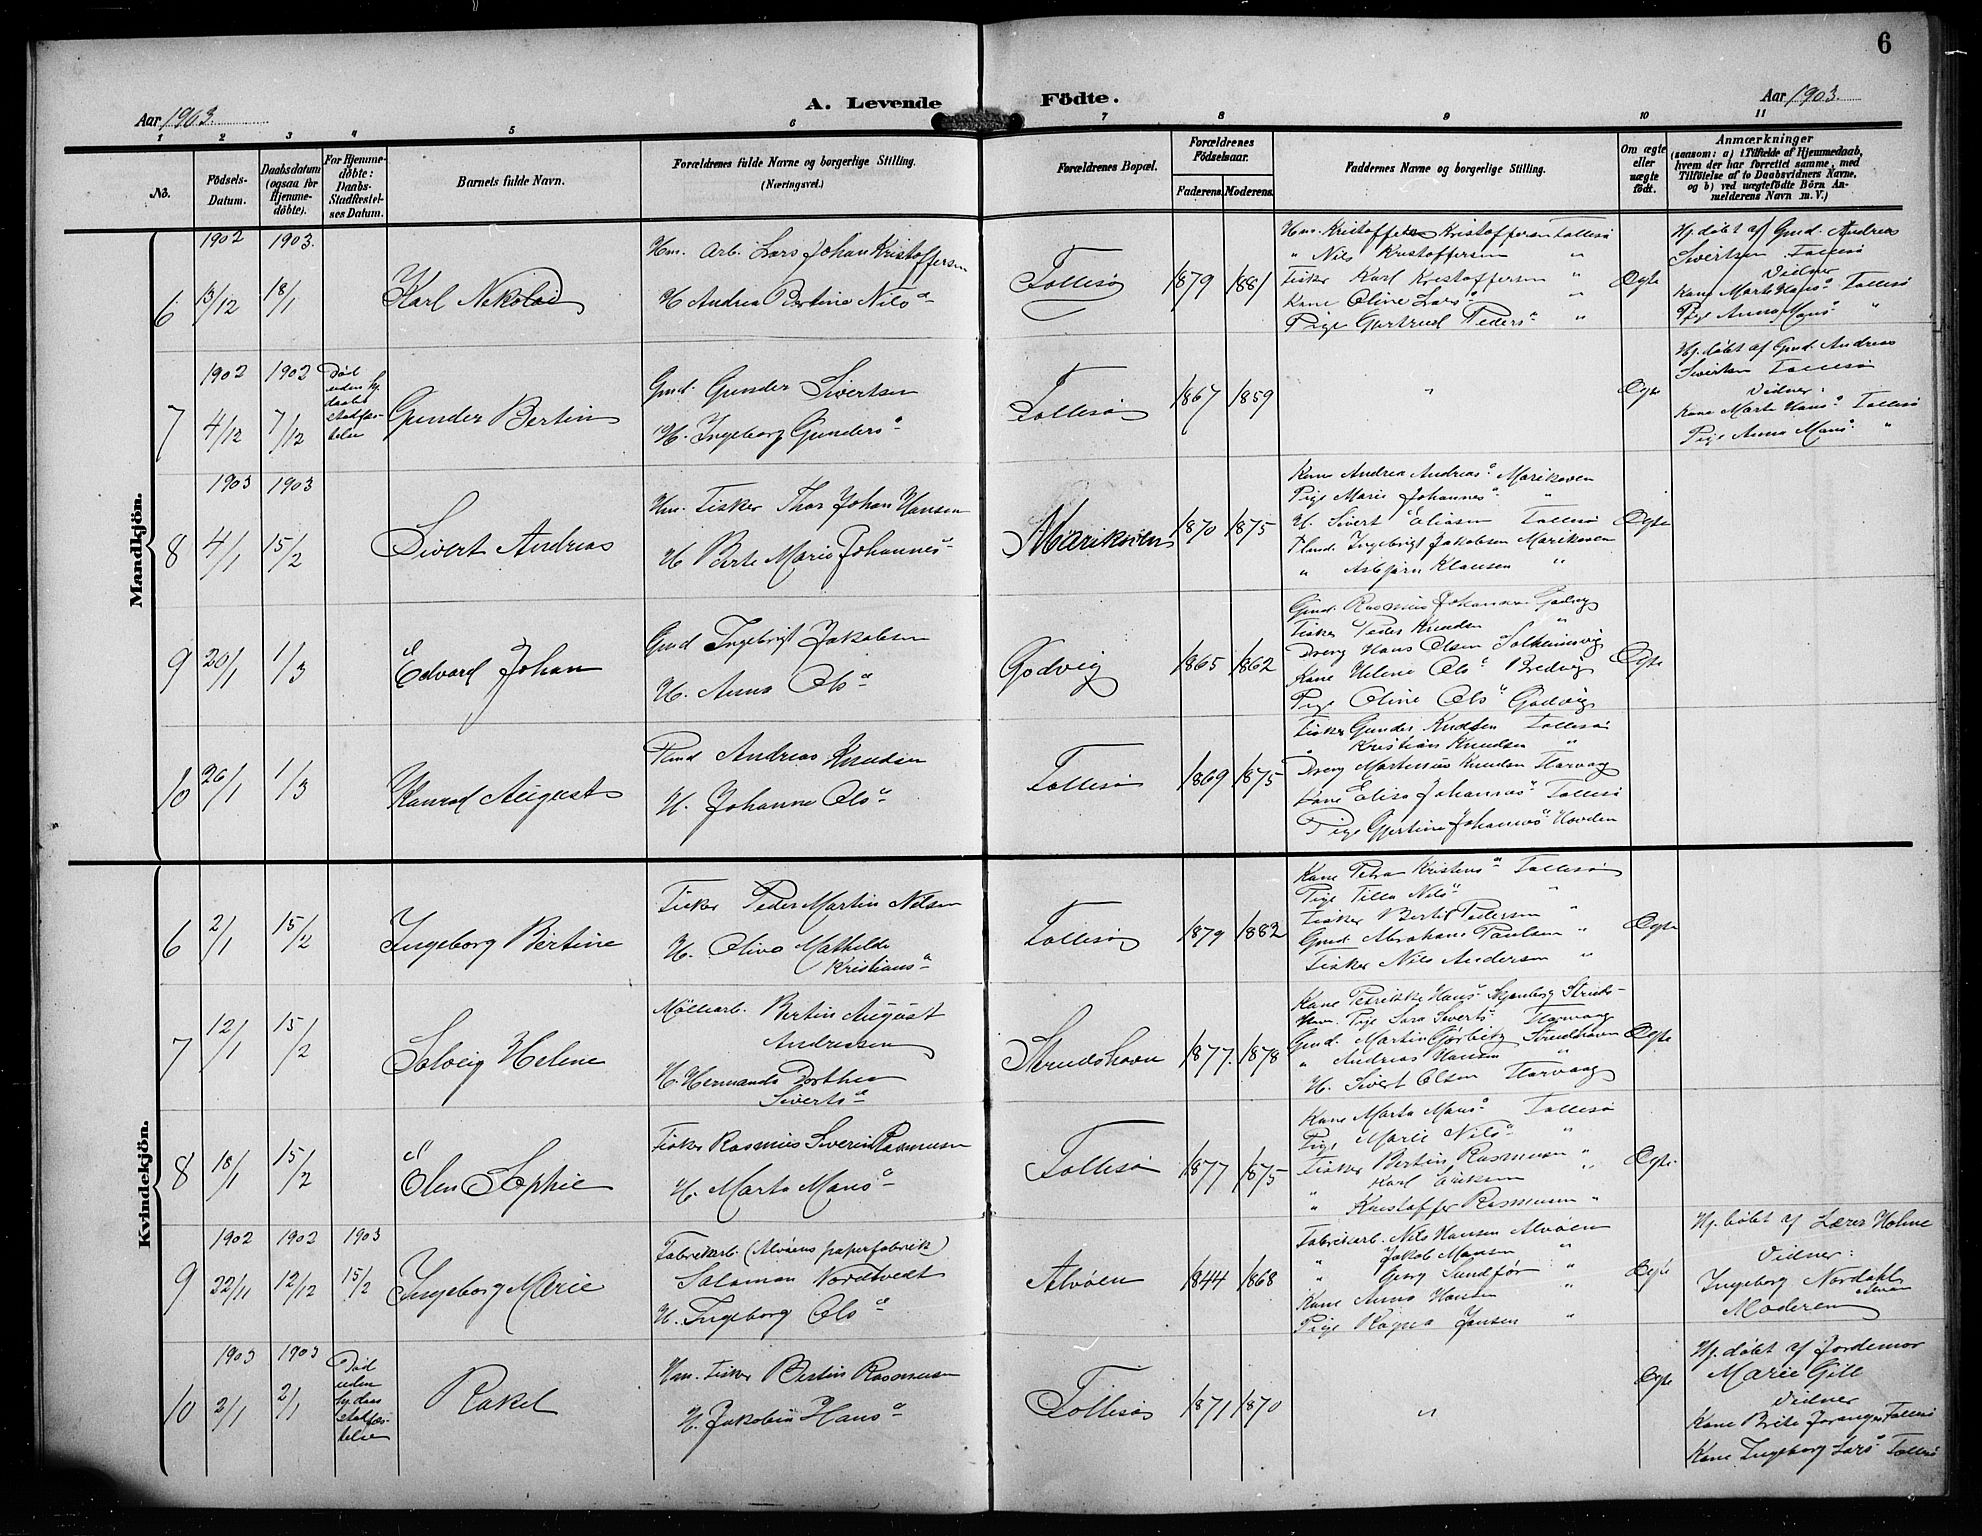 6
A. Levende Födte.
Aar 1903.
Aar 1903.
1 2 3 4 5 6 7 8 9 10 11
No.
Födsels-Datum.
Daabsdatum (ogsaa for Hjemmedöbte).
For Hjemmedöbte: Daabs-Stadfæstelses Datum.
Barnets fulde Navn.
Forældrenes fulde Navne og borgerlige Stilling.
(Næringsvei.)
Forældrenes Bopæl.
Forældrenes Födselsaar.
Faderens. Moderens.
Faddernes Navne og borgerlige Stilling.
Om ægte eller uægte födt.
Anmærkninger
(saasom: a) i Tilfælde af Hjemmedaab, hvem der har forrettet samme, med Tilföielse af to Daabsvidners Navne, og b) ved uægtefödte Börn Anmelderens Navn m. V.)
Mandkjön.
1902 1903.
6 13/12 18/1 Karl Nikolai
Um. Arb. Lars Johan Kristoffersen
H. Andrea Bertine Nilsd
Tollesø 1879 1881
Um. Kristoffer Kristoffersen Tollesø
" Nils Kristoffersen "
Fisker Karl Kristoffersen "
Kone Oline Larsd "
Pige Gertrud Pedersd "
Ægte
Hj. døbt af Gmd. Andreas
Sivertsen Tollesø
Vidner
Kone Marte Hansd Tollesø
Pige Anna Monsd "
1902 1902
7 4/12 7/12
Død
uden hj.
daabs
stadfæs-
telse
Gunder Bertin
Gmd. Gunder Sivertsen
H. Ingeborg Gundersd
Tollesø 1867 1859 " Ægte
Hj. døbt af Gmd. Andreas
Sivertsen Tollesø
Vidner:
Kone Marte Hansd Tollesø
Pige Anna Monsd "
1903 1903
8 4/1 15/2 Sivert Andreas
Um. Fisker Thor Johan Hansen
H. Berte Marie Johannesd
Marikoven 1870 1875
Kone Andrea Andreasd Marikoven
Pige Marie Johannesd "
U. Sivert Eliasen Tollesø
Plmd. Ingebrigt Jakobsen Marikoven
" Asbjørn Klausen "
Ægte
9 20/1 1/3 Edvard Johan
Gmd Ingebrigt Jakobsen
H. Anna Olsd
Godvig 1865 1862
Gmd. Rasmus Johannes. Godvig
Fisker Peder Knudsen "
Dreng Hans Olsen Solheimsvig
Kone Helene Olsd Bredvig
Pige Oline Olsd Godvig
Ægte
10 26/1 1/3 Konrad August
Plmd Andreas Knudsen
H. Johanne Olsd
Tollesø 1869 1875
Fisker Gunder Knudsen Tollesø
Kristian Knudsen "
Dreng Martinius Knudsen
Kone Elisa Johannesd Tollesø
Pige Gjertine Johannesd Hovden
Kvindekjön.
6 2/1 15/2 Ingeborg Bertine
Fisker Peder Martin Nilsen
H. Oliva Mathilde
Kristiansd
Tollesø 1879 1882
Kone Petra Kristensd Tollesø
Pige Tilla Nilsd "
Fisker Bertil Pedersen "
Gmd. Abraham Paulsen "
Fisker Nils Andersen "
Ægte
7 12/1 15/2 Solveig Helene
Møllearb. Bertin August
Andreasen
H. Hermanda Dorthea
Sivertsd
Strudshavn 1877. 1878
Kone Petrikke Hansd Struds-
havn. Pige Sara Sivertsd
Gmd. Martin Strudshavn
" Andreas Hansen "
U. Sivert Olsen
Ægte
8 18/1 15/2 Elen Sophie
Fisker Rasmus Severin Rasmussen
H. Marta Monsd
Tollesø 1877 1875
Kone Marta Monsd Tollesø
Pige Marie Nilsd "
Fisker Bertin Rasmussen "
Karl Eriksen "
" Kristoffer Rasmussen "
Ægte.
1902 1902 1903
9 22/11 12/12 15/2 Ingeborg Marie
Fabrikarb. (Alvøens papirfabrik)
Salamon Nordtvedt
H. Ingeborg Olsd
Alvøen 1844 1868
Fabrikarb. Nils Hansen Alvøen
" Jakob Monsen "
" Georg Sundfør "
Kone Anna Hansen "
Pige Ragna Jansen "
Ægte
Hj. døbt af Lærer Holme
Vidner:
Ingeborg Nordahl
Moderen
1903 1903
10 2/1 2/1
Død
uden
hj. daas
stadfæs-
telse
Rakel
Um. Fisker Bertin Rasmussen
H. Jakobine Hansd
Tollesø 1871 1870 " Ægte
Hj. døbt af Jordemor
Marie Gill
Vidner
Kone Brite Joranger Tollesø
Kone Ingeborg Larsd Tollesø